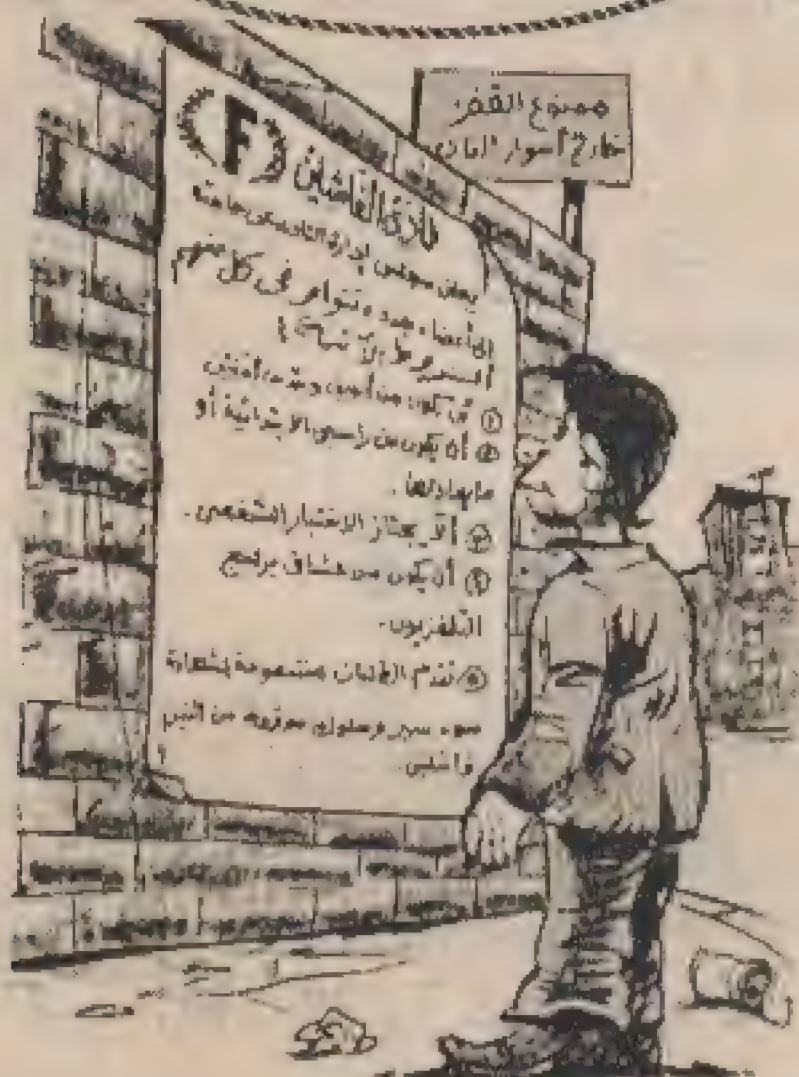 ممنوع القفز
خارج أسوار النادى
F
نادى الفاشلين
يعلن مجلس إدارة النادى عن حاجته
إلى أعضاء جدد تتوافر فى كل منهم
الشروط الآتية :
① أن يكون من
② أن يكون من راسبى الابتدائية أو
ما يعادلها .
③ ألا يجتاز الاختبار الشخصى .
④ أن يكون من عشاق برامج
التلفزيون .
⑤ تقدم الطلبات مصحوبة بشهادة
سوء سير وسلوك موقعة من اثنين
فاشلين .